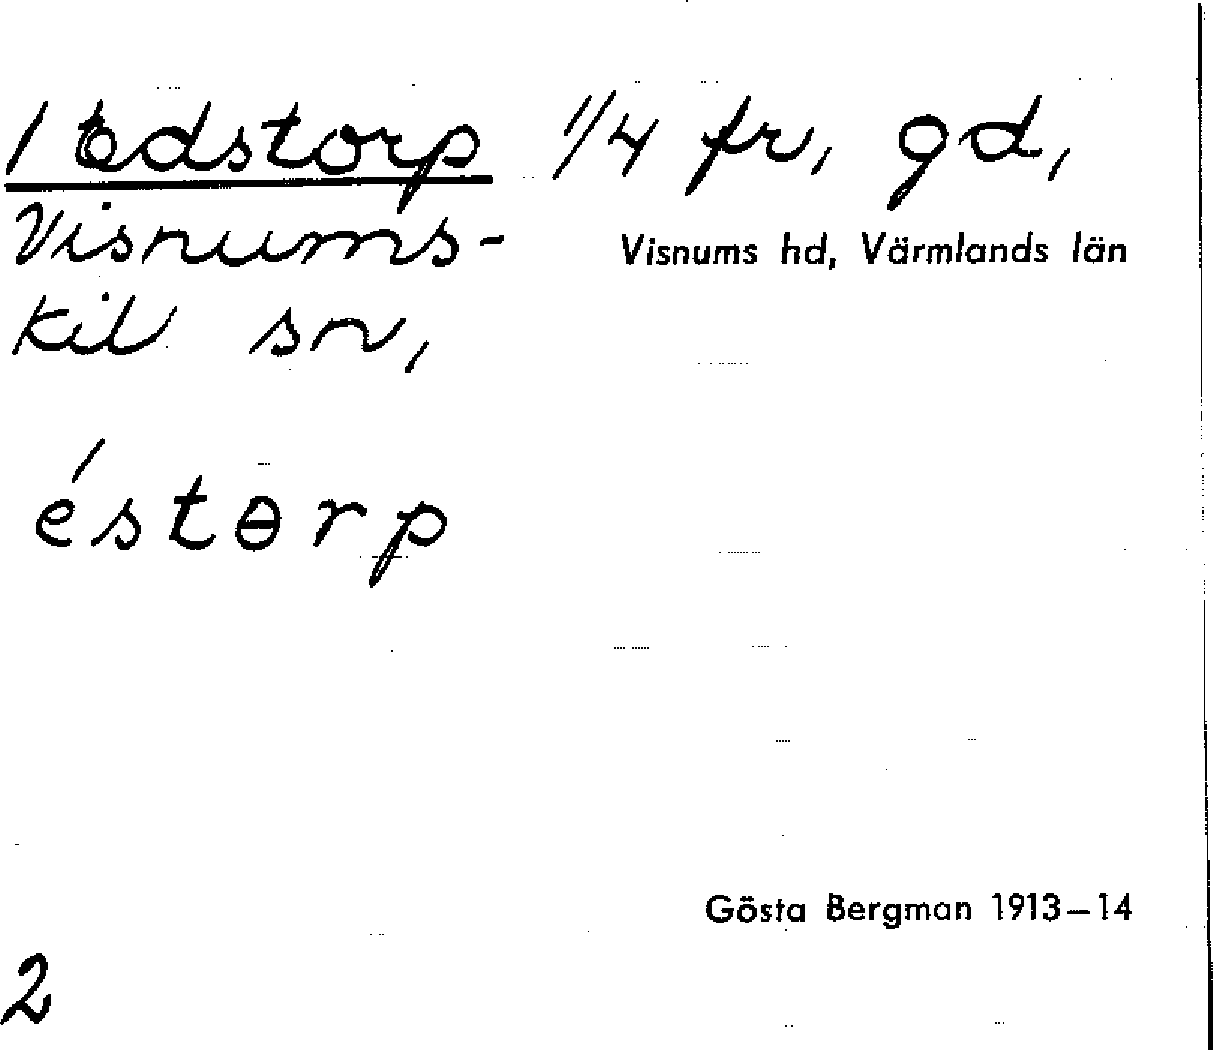 1 Edstorp 1/4 fr, gd,
Visnums-
kil sn,
Visnums hd, Värmlands län
éstɵrp
Gösta Bergman 1913–14
2